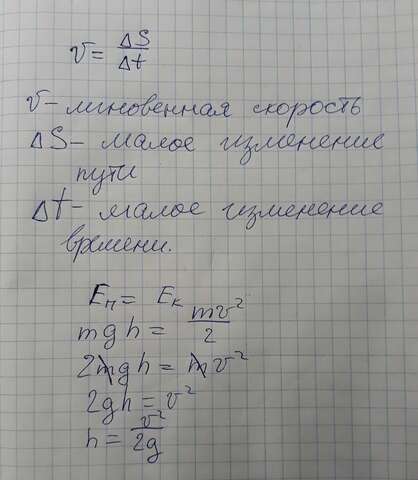 v = ΔS/Δt
v - мгновенная скорость
ΔS - малое изменение
пути
Δt - малое изменение
времени.
Eп = Eк
mgh = mv²/2
2mgh = mv²
2gh = v²
h = v²/2g